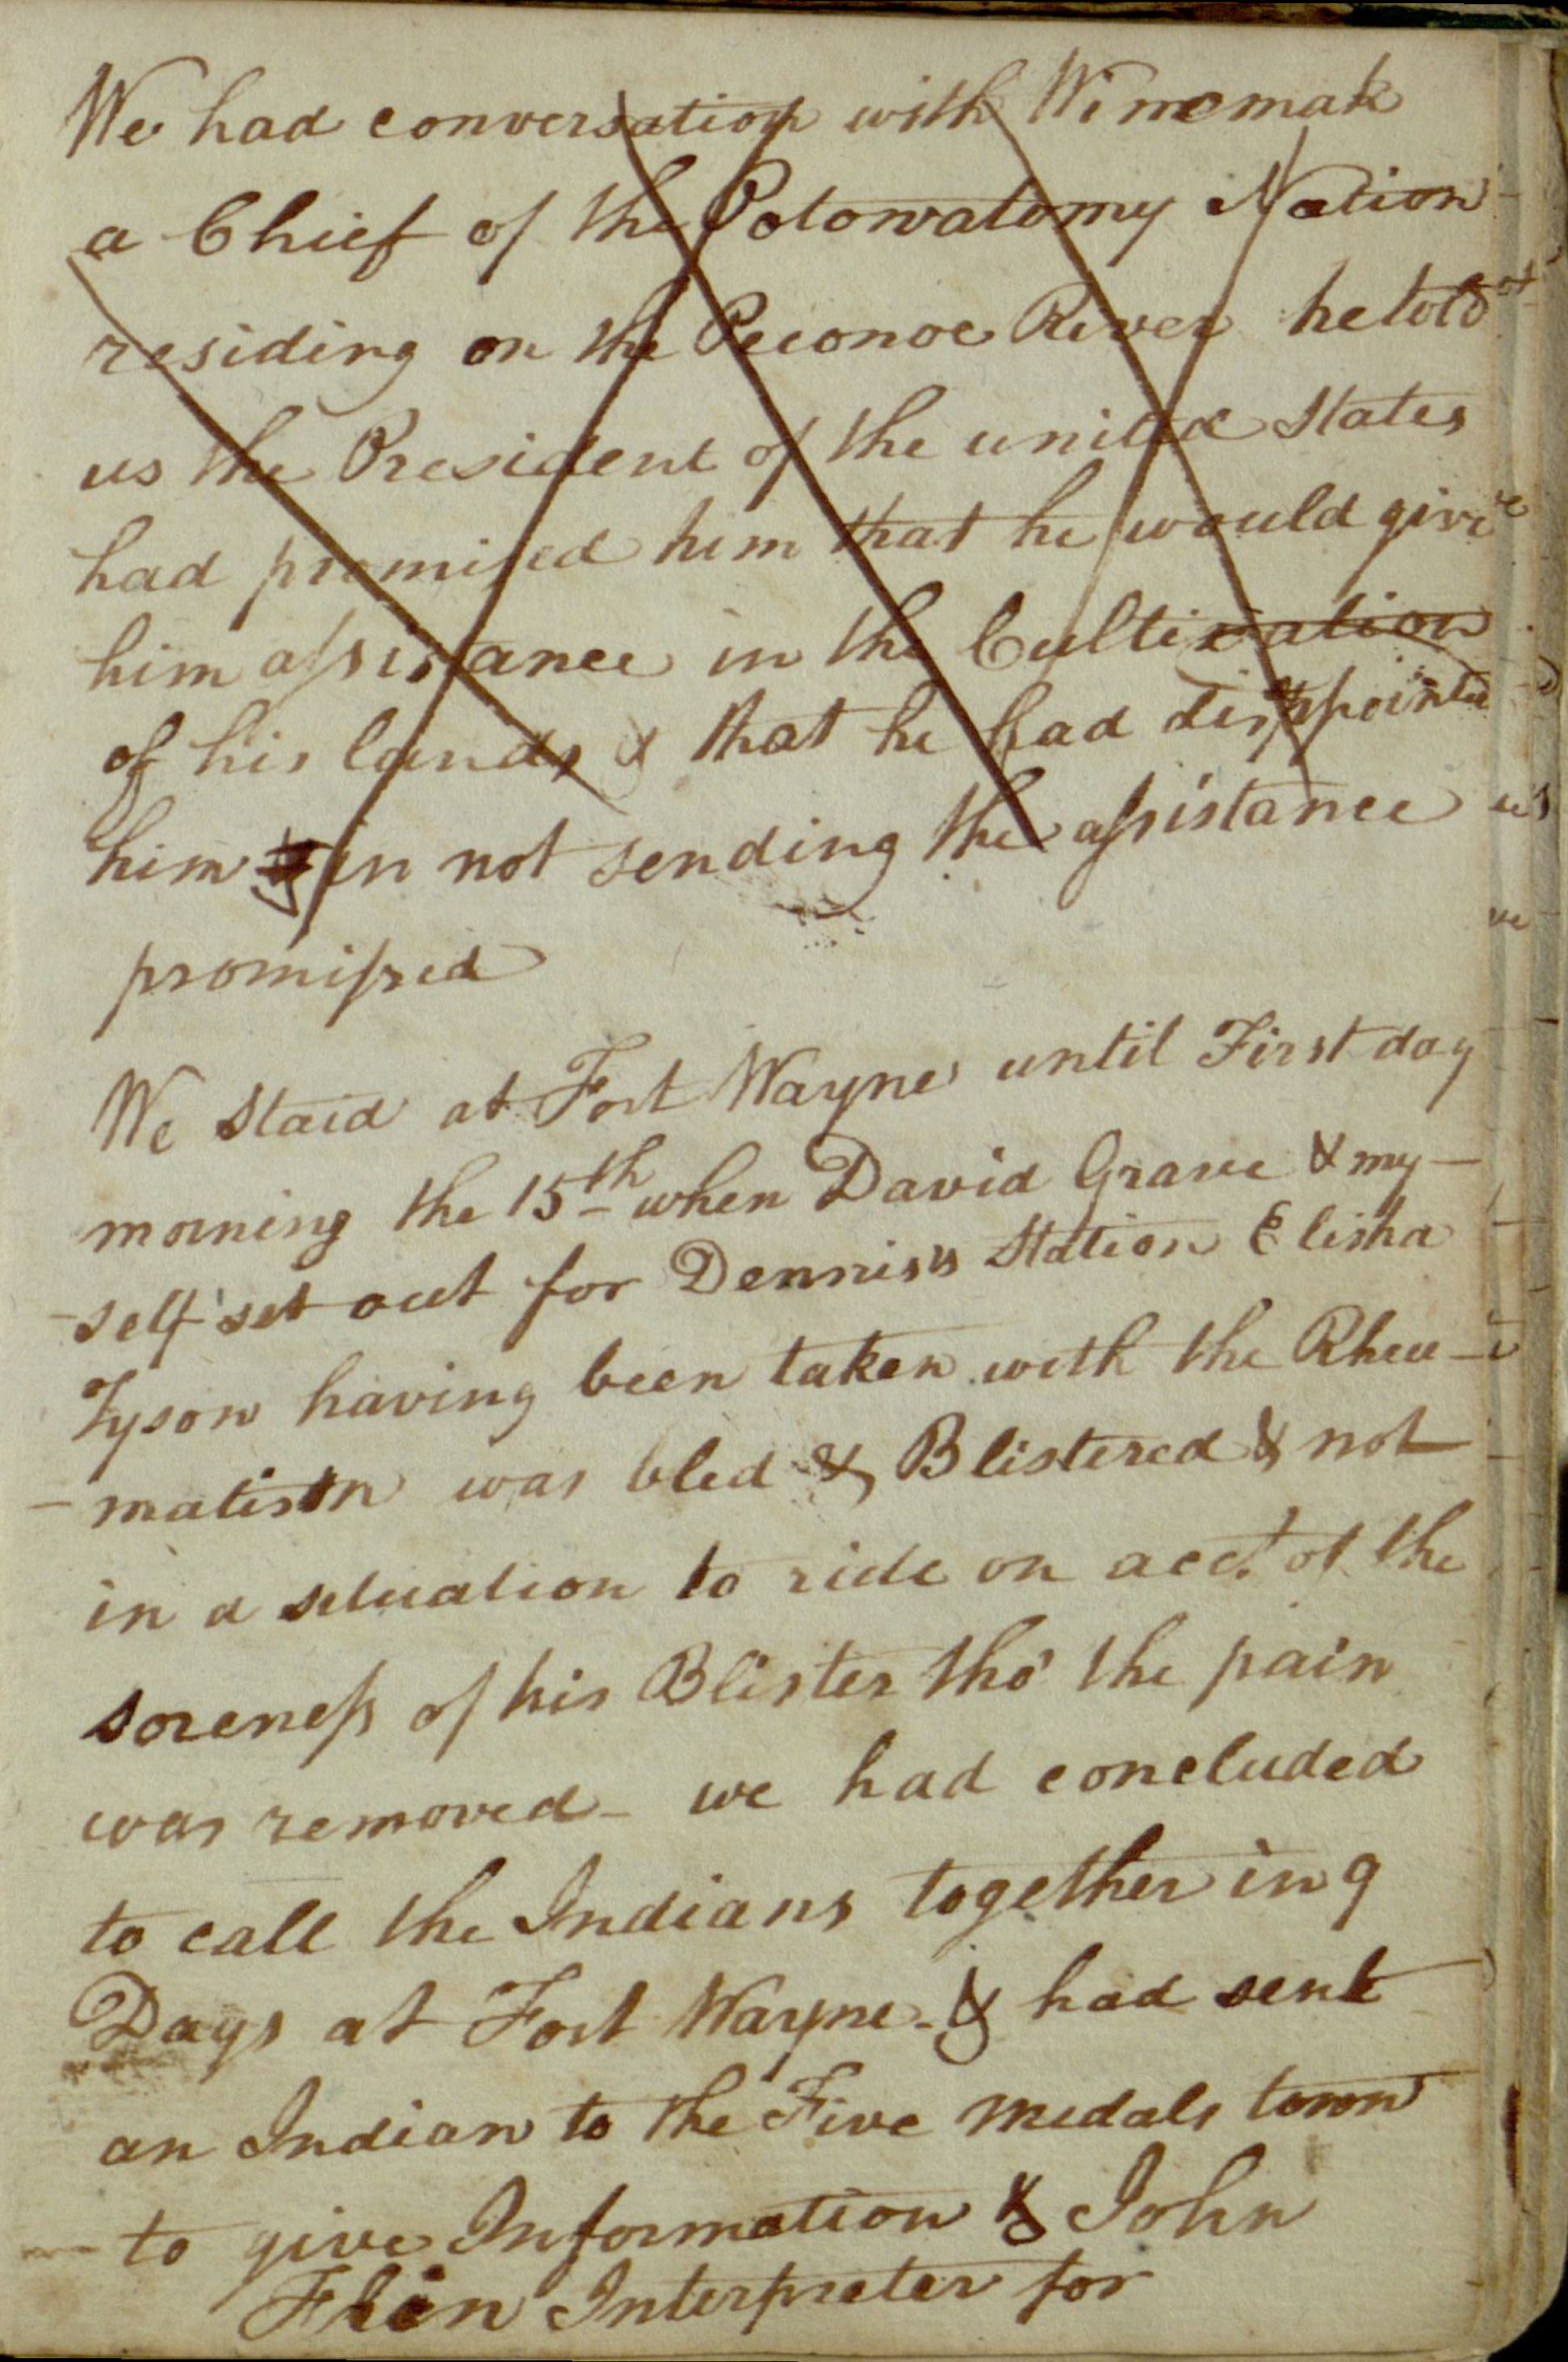 We had conversation with Winemak
a Chief of the Potowatomy Nation
residing on the Peconoe River he told
us the President of the united States
had promised him that he would give
him assistance in the Cultivation
of his lands & that he had disappointed
him in not sending the assistance
promissed
We staid at Fort Wayne until First day
morning the 15th when David Grave & my-
-self set out for Dennis's Station Elisha
Tyson having been taken with the Rheu-
-matism was bled & Blistered & not
in a situation to ride on acct. of the
soreness of his Blister tho' the pain
was removed - we had concluded
to call the Indians together in 9
Days at Fort Wayne - & had sent
an Indian to the Five Medals town
to give Information & John
Flin Interpreter for